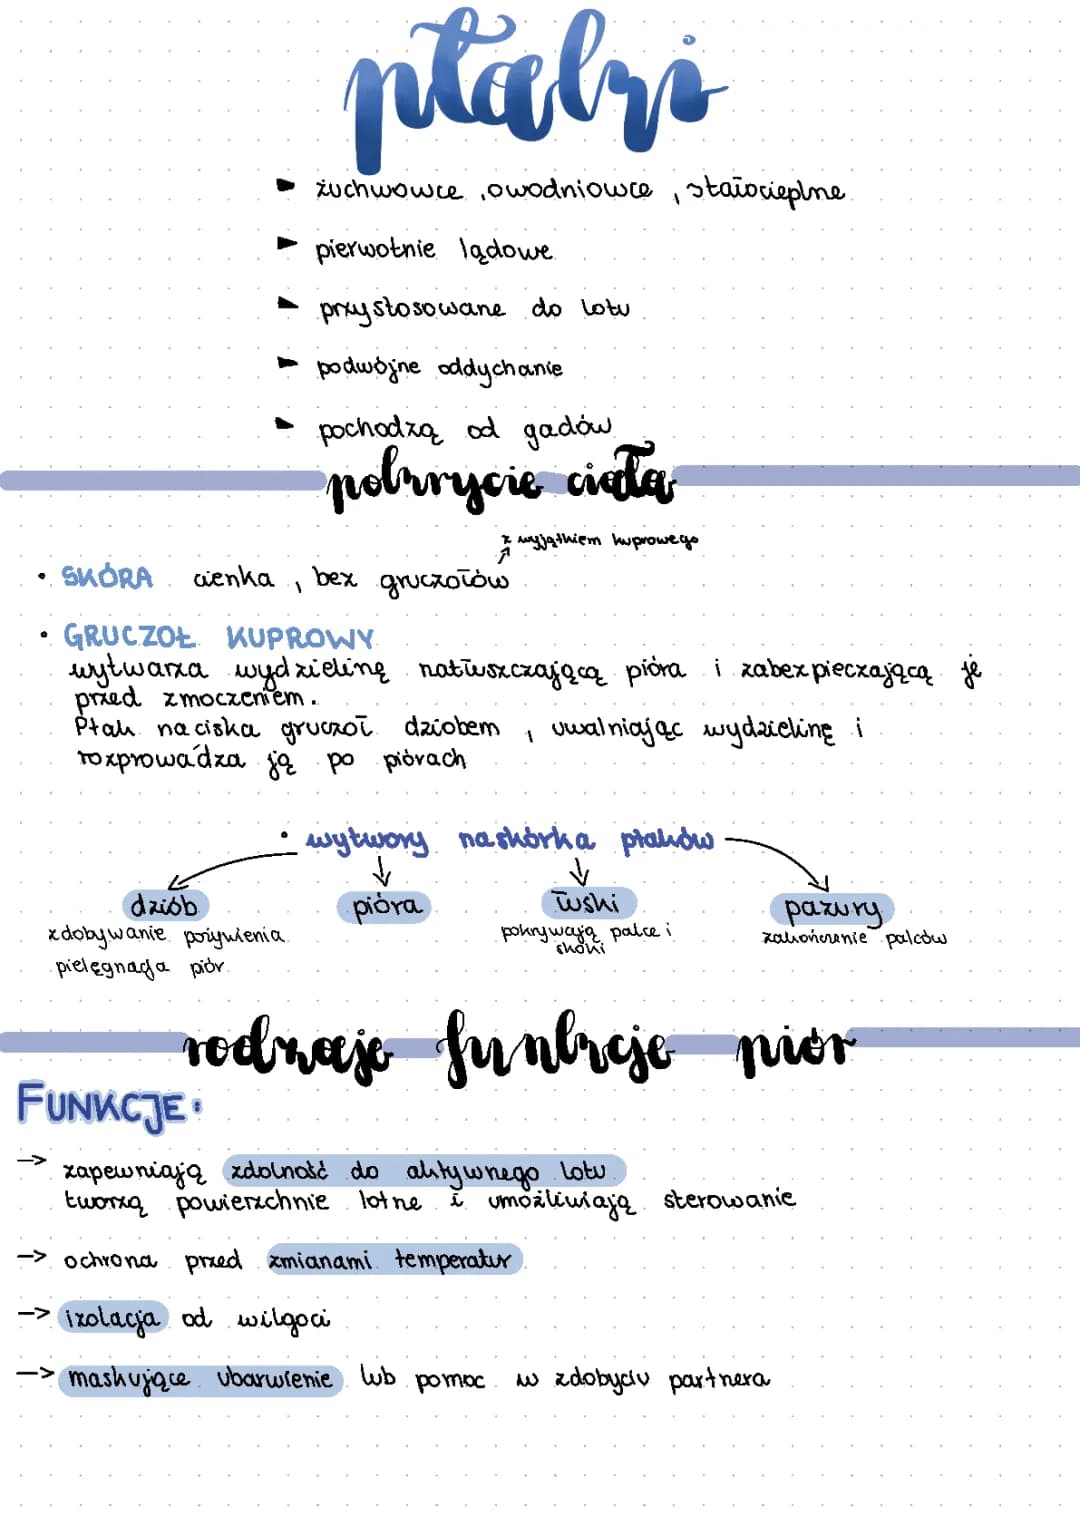 ptaki
żuchwowce, owodniowce, stałocieplne
pierwotnie lądowe
przystosowane do lotu
podwójne oddychanie
pochodzą od gadów
pokrycie ciała
z wyjątkiem kuprowego
• SKÓRA cienka, bez gruczołów
• GRUCZOŁ KUPROWY
wytwarza wydzielinę natłuszczającą pióra i zabezpieczającą je
przed zmoczeniem.
Ptak naciska gruczoł dziobem, uwalniając wydzielinę i
rozprowadza ją po piórach
• wytwory naskórka ptaków
dziób pióra łuski pazury
zdobywanie pożywienia pokrywają palce i zakończenie palców
pielęgnacja piór skoki
rodzaje funkcje piór
FUNKCJE:
-> zapewniają zdolność do aktywnego lotu
tworzą powierzchnie lotne i umożliwiają sterowanie
-> ochrona przed zmianami temperatur
-> izolacja od wilgoci
-> maskujące ubarwienie lub pomoc w zdobyciu partnera